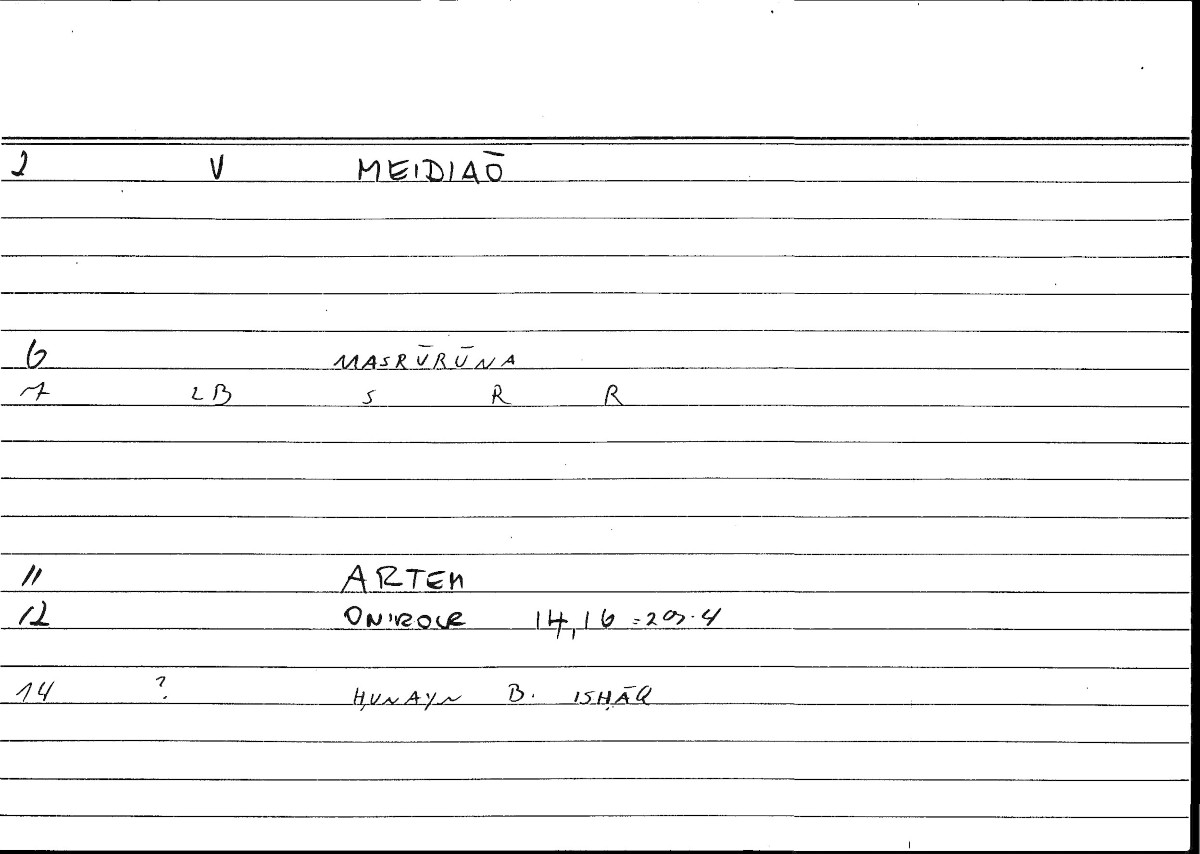 2 V MEIDIAŌ
6 MASRŪRŪNA
7 LB S R R
11 ARTEM
12 ONIROCR 14,16 = 20.4
14 ? ḤUNAYN B. ISḤĀQ